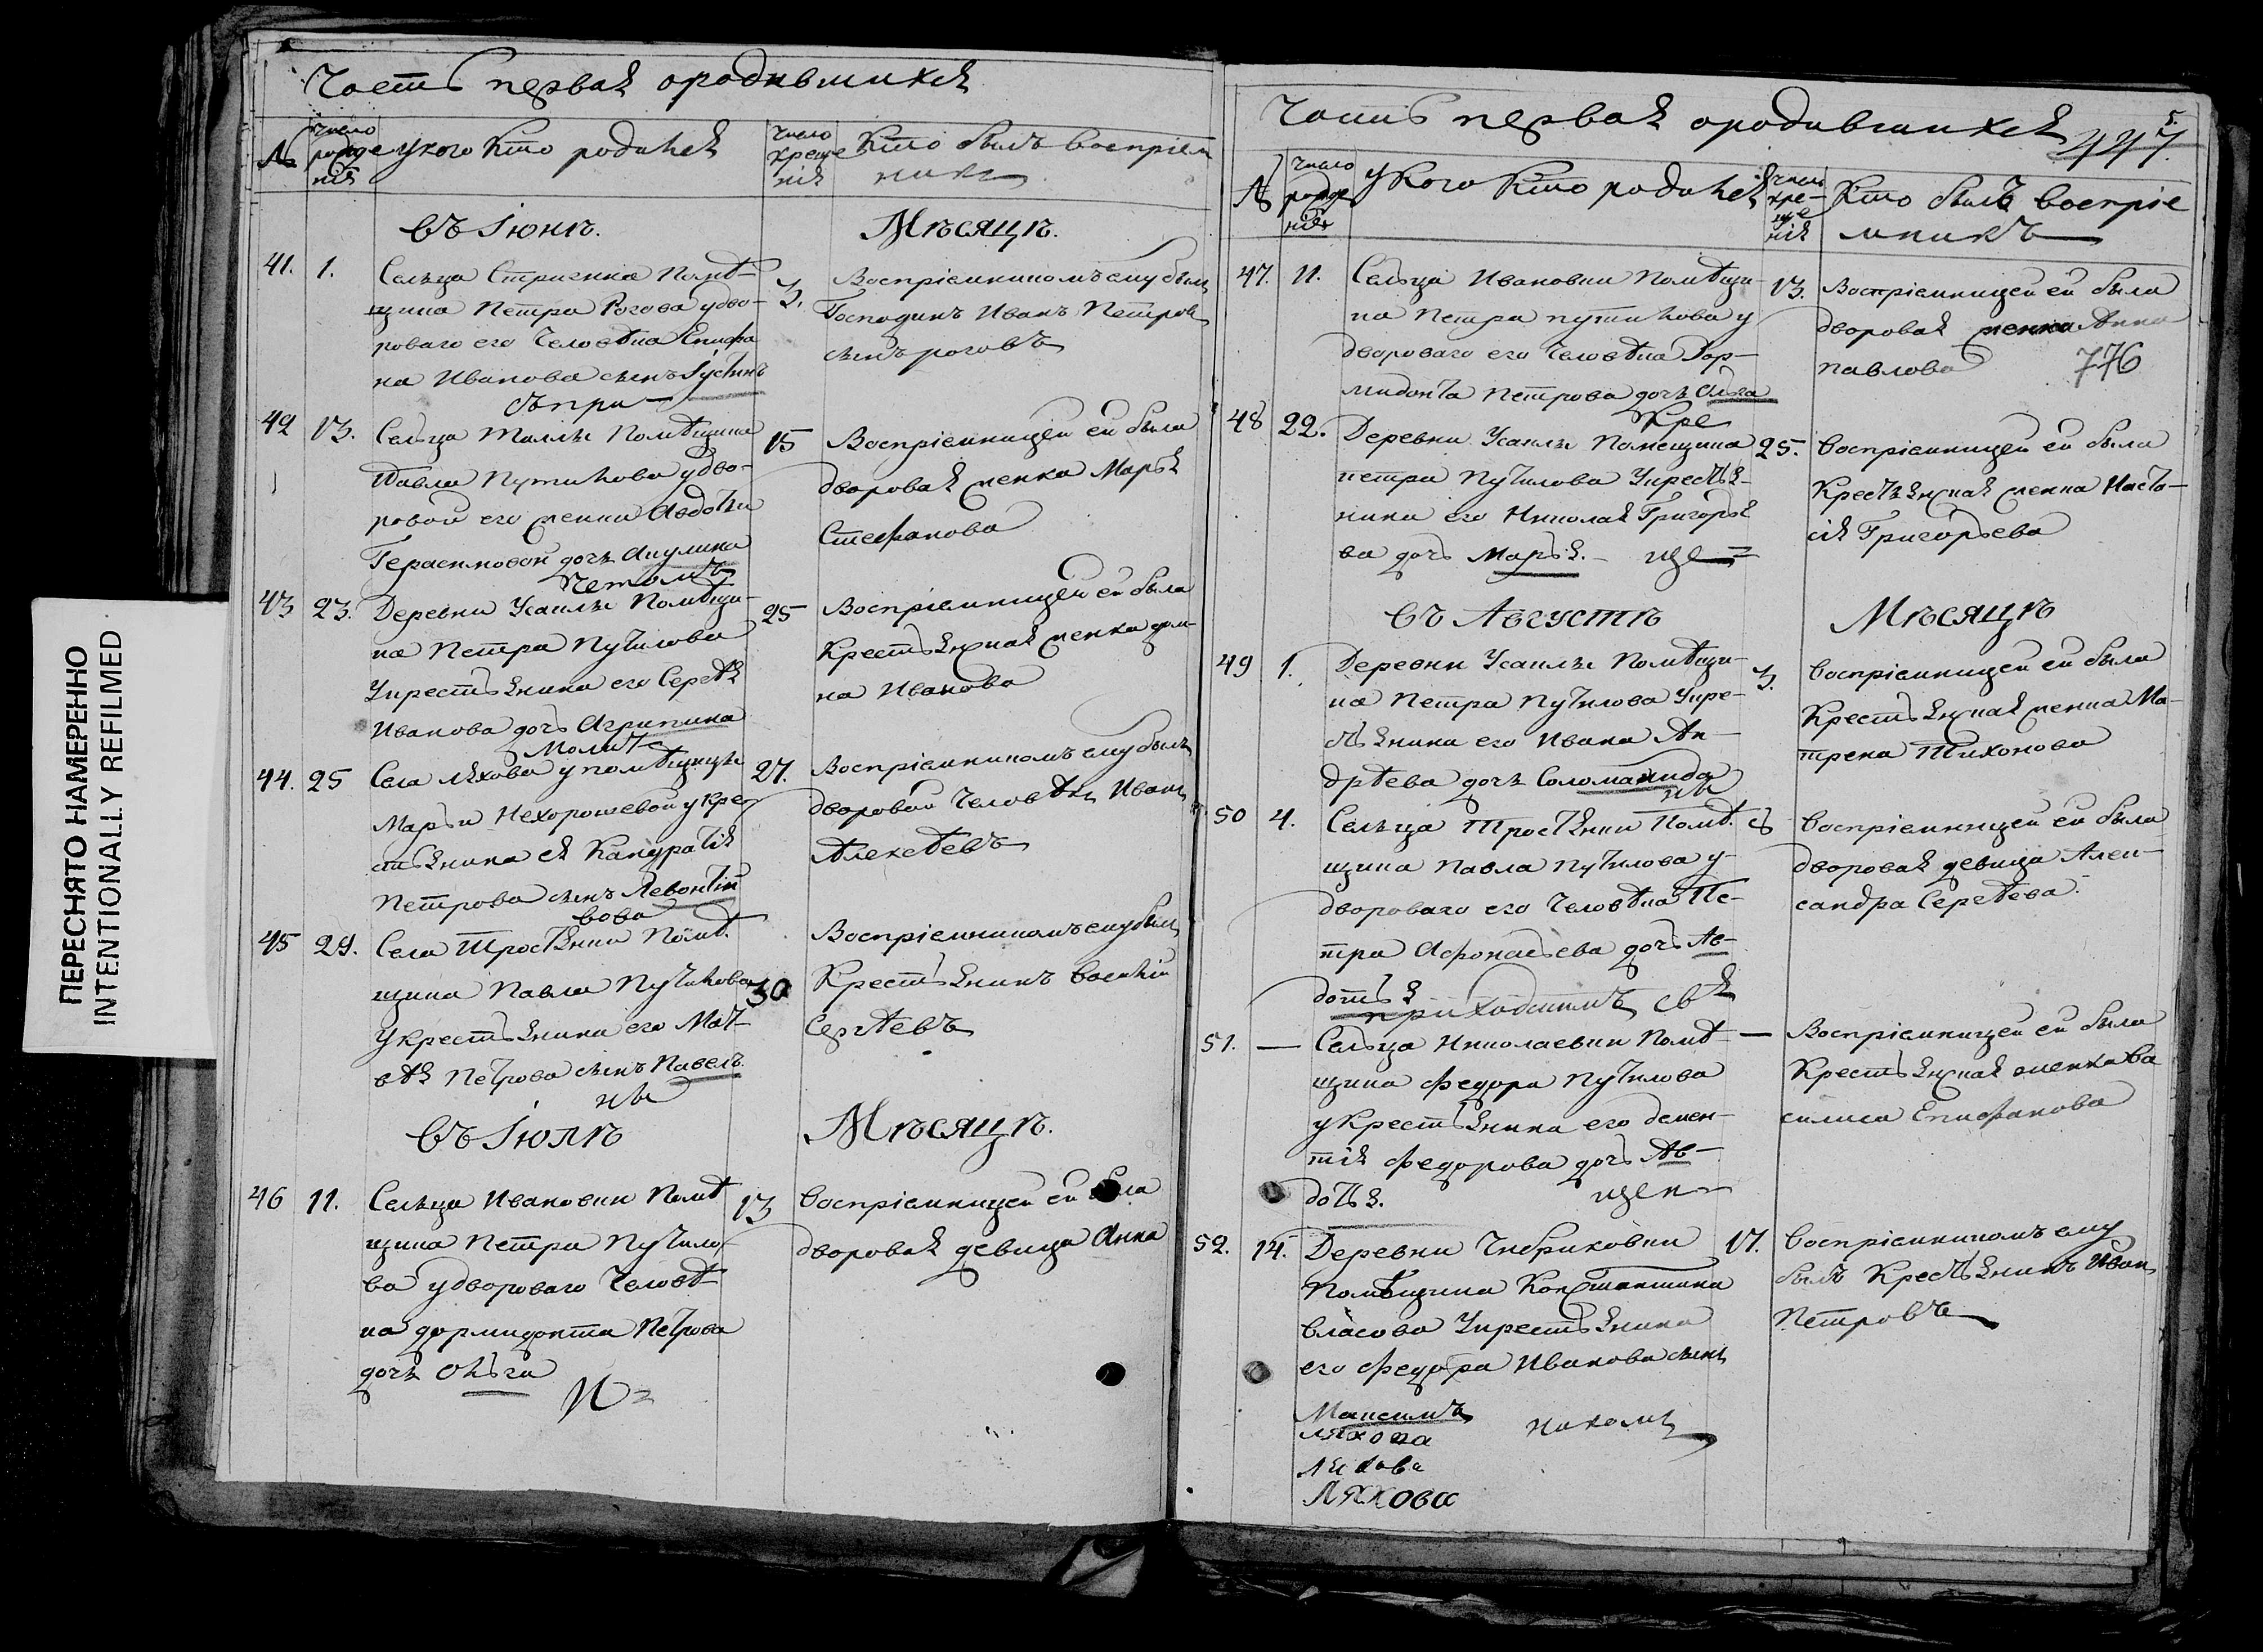 Часть первая о родившихся
№
число рожде нія
у кого кто родился
число креще нія
Кто былъ воспріем
никъ
въ Іюнѣ.
Мѣсяцѣ.
41. 1. Сельца Стригина Помѣ-
щика Петра Рогова у дво-
роваго его человѣка Епифа
на Иванова сынъ Іустинъ
3. Воспріемникомъ ему былъ
Господинъ Иванъ Петровъ
сынъ роговъ
съ при
42 13. Сельца Павла Помѣщика
Путилова у дво-
ровой его женки Авдотьи
Герасимовой дочь Акулина
15 Воспріемницей ей была
дворовая женка Марья
Стефанова
четомъ
43 23. Деревни Усаилы Помѣщи-
ка Петра Путилова
у крестьянина его Сергѣя
Иванова дочь Агрипина
25 Воспріемницей ей была
Крестьянская женка
на Иванова
44. 25 Села Ляхова у помѣщицы
Марьи Нехорошевой у кре
стьянина ея Кандратія
Петрова сынъ Левонтій
27. Воспріемникомъ ему былъ
дворовой человѣкъ Иванъ
Алексѣевъ
вова
45 28. Села Тростянки Помѣ.
щика Павла Путилова
у крестьянина его Мат-
вѣя Петрова сынъ Павелъ.
30 Воспріемникомъ ему былъ
Крестьянинъ Василій
Сергѣевъ
ны
въ Іюлѣ
Мѣсяцѣ.
46 11. Сельца Ивановки Помѣ
щика Петра Путило
ва у двороваго человѣ-
ка дормидонта Петрова
дочь Ольга
13 Воспріемницей ей была
дворовая девица Анна
И
Часть первая о родившихся
5
447
№
число рожде нія
у кого кто родился
число кре- ще нія
Кто былъ воспріе
мникъ
47. 11. Сельца Ивановки Помѣщи-
ка Петра путилова у
двороваго его человѣка Дор-
мидонта Петрова дочь Ольга
13. Воспріемницей ей была
дворовая женка Анна
павлова
776
Кре
48 22. Деревни Усаилы Помещика
петра Путилова у крестья-
нина его Николая Григорье
ва дочь Марья. ще
25. Воспріемницей ей была
Крестьянская женка Наста-
сія Григорьева
въ Августѣ
Мѣсяцѣ
49 1. Деревни Усаилы Помѣщи-
ка Петра Путилова у кре-
стьянина его Ивана Ан-
дрѣева дочь Соломанида
3. Воспріемницей ей была
Крестьянская женка Ма-
трена Тихонова
ны
50 4. Сельца Тростянки Помѣ.
щика Павла Путилова у
двороваго его человѣка Пе-
тра Афонасьева дочь Ав-
дотья
6 Воспріемницей ей была
дворовая девица Алек-
сандра Сергѣева.
приходскимъ свя
51. — Сельца Николаевки Помѣ-
щика Федора Путилова
у Крестьянина его демен-
тія Федорова дочь Ав-
дотья.
— Воспріемницей ей была
Крестьянская женка Ва
силиса Епифанова
щен
52. 14. Деревни Чибриковки
Помѣщика Константина
Власова у крестьянина
его Федора Иванова сынъ
Максимъ
17. Воспріемникомъ ему
былъ Крестьянинъ Иванъ
Петровъ
никомъ
Ляхова
Ляхова
Ляхова
ПЕРЕСНЯТО НАМЕРЕННО
INTENTIONALLY REFILMED